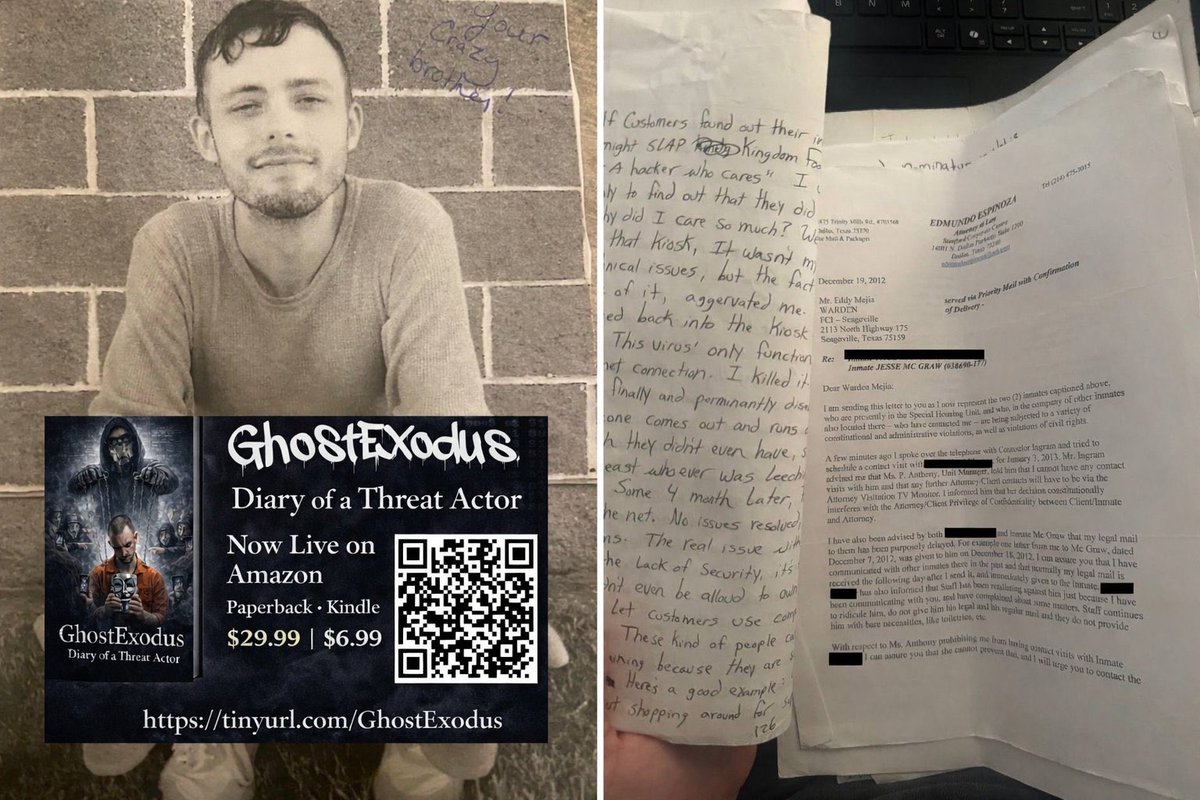 your
crazy
brother!
GhostExodus
Diary of a Threat Actor
Now Live on
Amazon
Paperback · Kindle
$29.99 | $6.99
https://tinyurl.com/GhostExodus
GhostExodus
Diary of a Threat Actor
If Customers found out their
might SLAP Kingdom
A hacker who cares" I
to find out that they did
did I care so much?
that Kiosk, It wasn't
issues, but the fact
of it, aggervated me.
back into the Kiosk
This virus' only function
connection. I killed it
finally and perminantly
comes out and runs
they didn't even have,
whoever was
Some 4 month Later,
the net. No issues resolved,
The real issue with
the Lack of Security, its
even be alloud to own
Let customers use
These kind of people
because they are
Here's a good example:
shopping around for
126
Tel (214) 475-2015
EDMUNDO ESPINOZA
Attorney at Law
Dallas, Texas
December 19, 2012
served via Priority Mail with Confirmation
of Delivery -
Mr. Eddy Mejia
WARDEN
FCI – Seagoville
2113 North Highway 175
Seagoville, Texas 75159
Re:
Inmate JESSE MC GRAW (038690-177)
Dear Warden Mejia:
I am sending this letter to you as I now represent the two (2) inmates captioned above,
who are presently in the Special Housing Unit, and who, in the company of other inmates
also located there – who have contacted me – are being subjected to a variety of
constitutional and administrative violations, as well as violations of civil rights.
A few minutes ago I spoke over the telephone with Counselor Ingram and tried to
schedule a contact visit with for January 3, 2013. Mr. Ingram
advised me that Ms. P. Anthony, Unit Manager, told him that I cannot have any contact
visits with him and that any further Attorney-Client contacts will have to be via the
Attorney Visitation TV Monitor. I informed him that her decision constitutionally
interferes with the Attorney/Client Privilege of Confidentiality between Client/Inmate
and Attorney.
I have also been advised by both and Inmate Mc Graw that my legal mail
to them has been purposely delayed. For example one letter from me to Mc Graw, dated
December 7, 2012, was given to him on December 18, 2012. I can assure you that I have
communicated with other inmates there in the past and that normally my legal mail is
received the following day after I send it, and immediately given to the inmate.
has also informed that Staff has been retaliating against him just because I have
been communicating with you, and have complained about some matters. Staff continues
to ridicule him, do not give him his legal and his regular mail and they do not provide
him with bare necessities, like toiletries, etc.
With respect to Ms. Anthony prohibiting me from having contact visits with Inmate
I can assure you that she cannot prevent that, and I will urge you to contact the